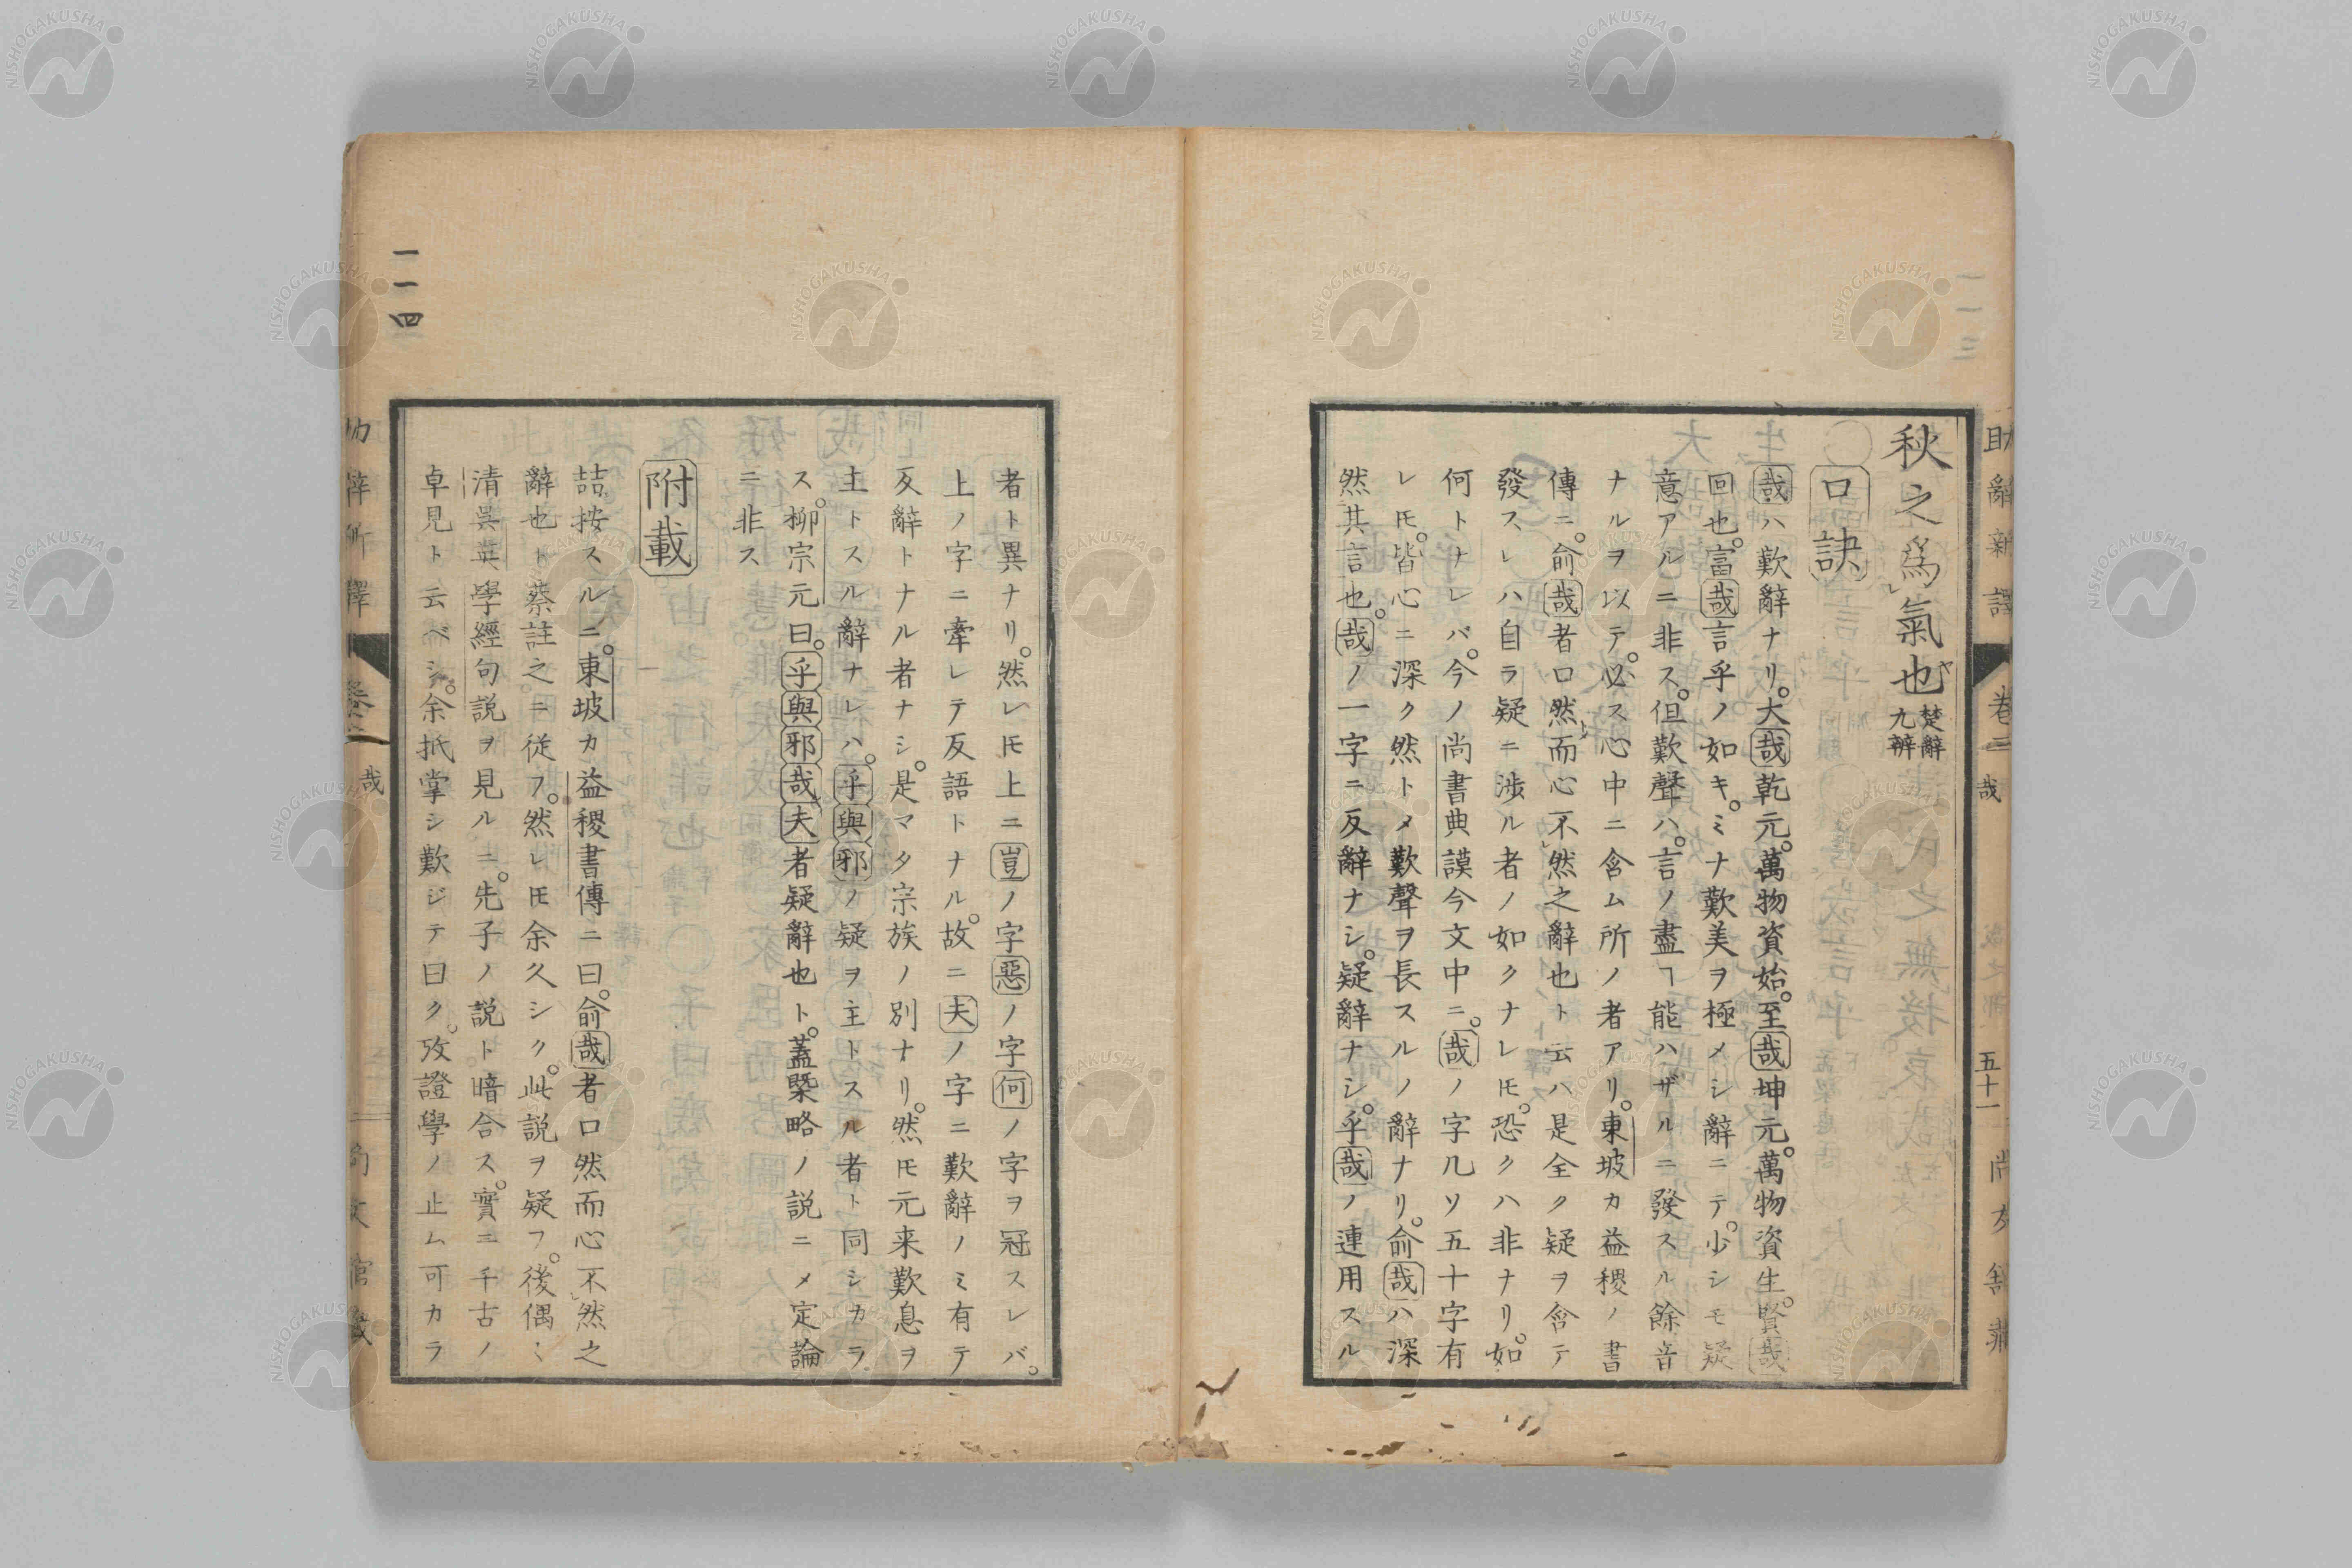 助辭新譯
卷二
哉
五十一
秋之爲氣也楚辭九辨
口訣
哉ハ歎辭ナリ。大哉乾元。萬物資始。至哉坤元。萬物資生。賢哉
回也。富哉言乎ノ如キ。ミナ歎美ヲ極メシ辭ニテ。少シモ疑
意アルニ非ス。但歎聲ハ。言ノ盡ヿ能ハザルニ發スル餘音
ナルヲ以テ。必ス心中ニ含ム所ノ者アリ。東坡カ益稷ノ書
傳ニ。俞哉者口然而心不然之辭也ト云ハ是全ク疑ヲ含テ
發スレハ自ラ疑ニ渉ル者ノ如クナレ𪜈。恐クハ非ナリ。如
何トナレバ。今ノ尚書典謨今文中ニ。哉ノ字凡ソ五十字有
レ𪜈。皆心ニ深ク然トメ歎聲ヲ長スルノ辭ナリ。俞哉ハ深
然其言也。哉ノ一字ニ反辭ナシ。疑辭ナシ。乎哉ノ連用スル
者ト異ナリ。然レ𪜈上ニ豈ノ字惡ノ字何ノ字ヲ冠スレバ。
上ノ字ニ牽レテ反語トナル。故ニ夫ノ字ニ歎辭ノミ有テ
反辭トナル者ナシ。是マタ宗族ノ別ナリ。然𪜈元来歎息ヲ
主トスル辭ナレハ。乎與邪ノ疑ヲ主トスル者ト同シカラ
ス。柳宗元曰。乎與邪哉夫者疑辭也ト。蓋槩略ノ説ニメ定論
ニ非ス
附載
喆按スルニ。東坡カ益稷書傳ニ曰。俞哉者口然而心不然之
辭也ト蔡註之ニ從フ。然レ𪜈余久シク。此説ヲ疑フ。後偶〻
清呉英學經句説ヲ見ルニ。先子ノ説ト暗合ス。實ニ千古ノ
卓見ト云ベシ。余抵掌シ歎ジテ曰ク。攷證學ノ止ム可カラ
哉
一一四